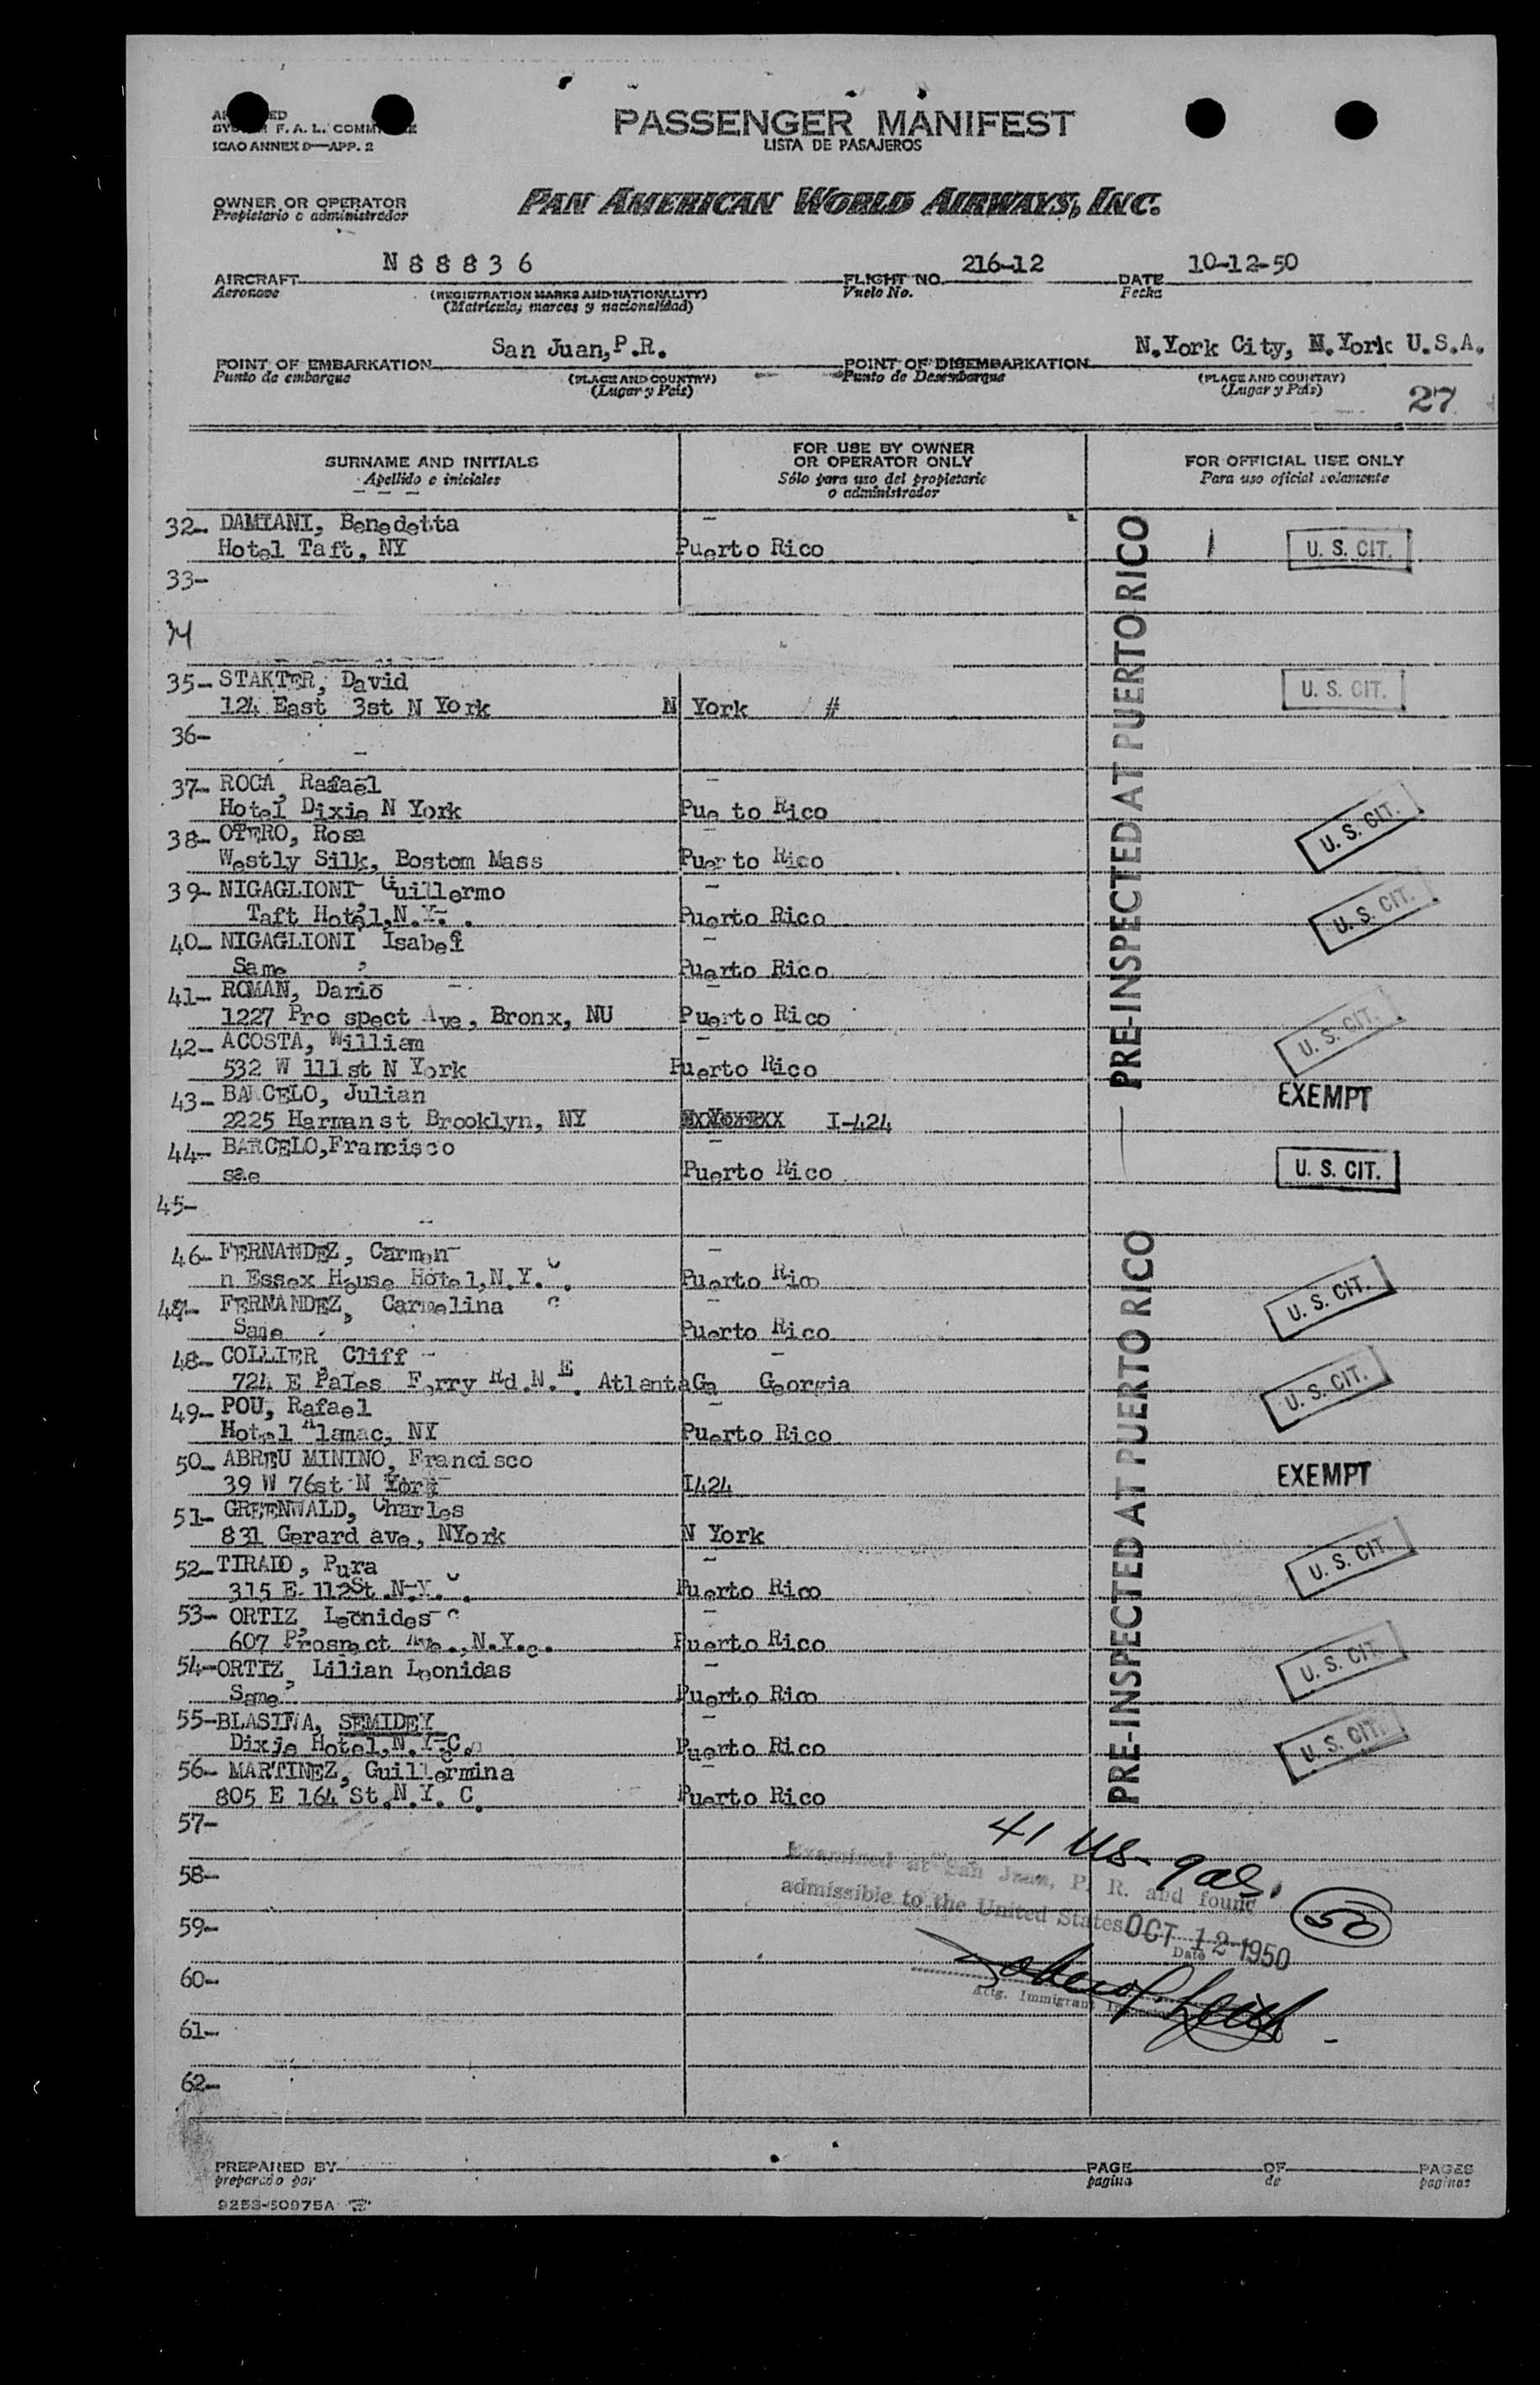 F. A. L.
ICAO ANNEX 9—APP. 2
PASSENGER MANIFEST
LISTA DE PASAJEROS
OWNER OR OPERATOR
Propietario o administrador
PAN AMERICAN WORLD AIRWAYS, INC.
AIRCRAFT N 8 8 8 3 6 FLIGHT NO. 216-12 DATE 10-12-50
Aeronave (REGISTRATION MARKS AND NATIONALITY) Vuelo No. Fecha
(Matricula, marcas y nacionalidad)
POINT OF EMBARKATION San Juan,P.R. POINT OF DISEMBARKATION N.York City, N.York U.S.A.
Punto de embarque (PLACE AND COUNTRY) Punto de Desembarque (PLACE AND COUNTRY)
(Lugar y País) (Lugar y País)
27
SURNAME AND INITIALS
Apellido e iniciales
FOR USE BY OWNER
OR OPERATOR ONLY
Sólo para uso del propietario
o administrador
FOR OFFICIAL USE ONLY
Para uso oficial solamente
32- DAMIANI, Benedetta
Hotel Taft, NY Puerto Rico U. S. CIT.
33-
34
35- STAKTER, David
124 East 3st N York N York # U. S. CIT.
36-
37- ROCA, Rafael
Hotel Dixie N York Pue to Rico
38- OTERO, Rosa U. S. CIT.
Westly Silk, Bostom Mass Puerto Rico
39- NIGAGLIONI, Guillermo
Taft Hotel,N.Y. Puerto Rico U. S. CIT.
40- NIGAGLIONI, Isabel
Same Puerto Rico
41- ROMAN, Dario
1227 Pro spect Ave, Bronx, NU Puerto Rico
42- ACOSTA, William U. S. CIT.
532 W 111st N York Puerto Rico
43- BARCELO, Julian EXEMPT
2225 Harmanst Brooklyn, NY I-424
44- BARCELO,Francisco
sae Puerto Rico U. S. CIT.
45-
46- FERNANDEZ, Carmen
n Essex House Hotel,N.Y.C. Puerto Rico
FERNANDEZ, Carmelina U. S. CIT.
Same Puerto Rico
48- COLLIER, Cliff
724 E Pales Ferry Rd.N.E. Atlanta Ga Georgia U. S. CIT.
49- POU, Rafael
Hotel Alamac, NY Puerto Rico
50- ABREU MININO, Francisco
39 W 76st N York I424 EXEMPT
51- GREENWALD, Charles
831 Gerard ave, NYork N York
52- TIRADO, Pura U. S. CIT.
315 E. 112St.N.Y.C. Puerto Rico
53- ORTIZ, Leonides
607 Prospect Ave.,N.Y.c. Puerto Rico
54- ORTIZ, Lilian Leonidas U. S. CIT.
Same Puerto Rico
55- BLASINA, SEMIDEY
Dixie Hotel,N.Y.C. Puerto Rico U. S. CIT.
56- MARTINEZ, Guillermina
805 E 164 St.N.Y. C. Puerto Rico
PRE-INSPECTED AT PUERTO RICO
PRE-INSPECTED AT PUERTO RICO
57-
41 US- 9 als.
58-
Examined at San Juan, P. R. and found
admissible to the United States OCT 12 1950
Date
50
59-
60-
Actg. Immigrant Inspector
61-
62-
PREPARED BY PAGE OF PAGES
preparado por pagina de paginas
9253-50975A